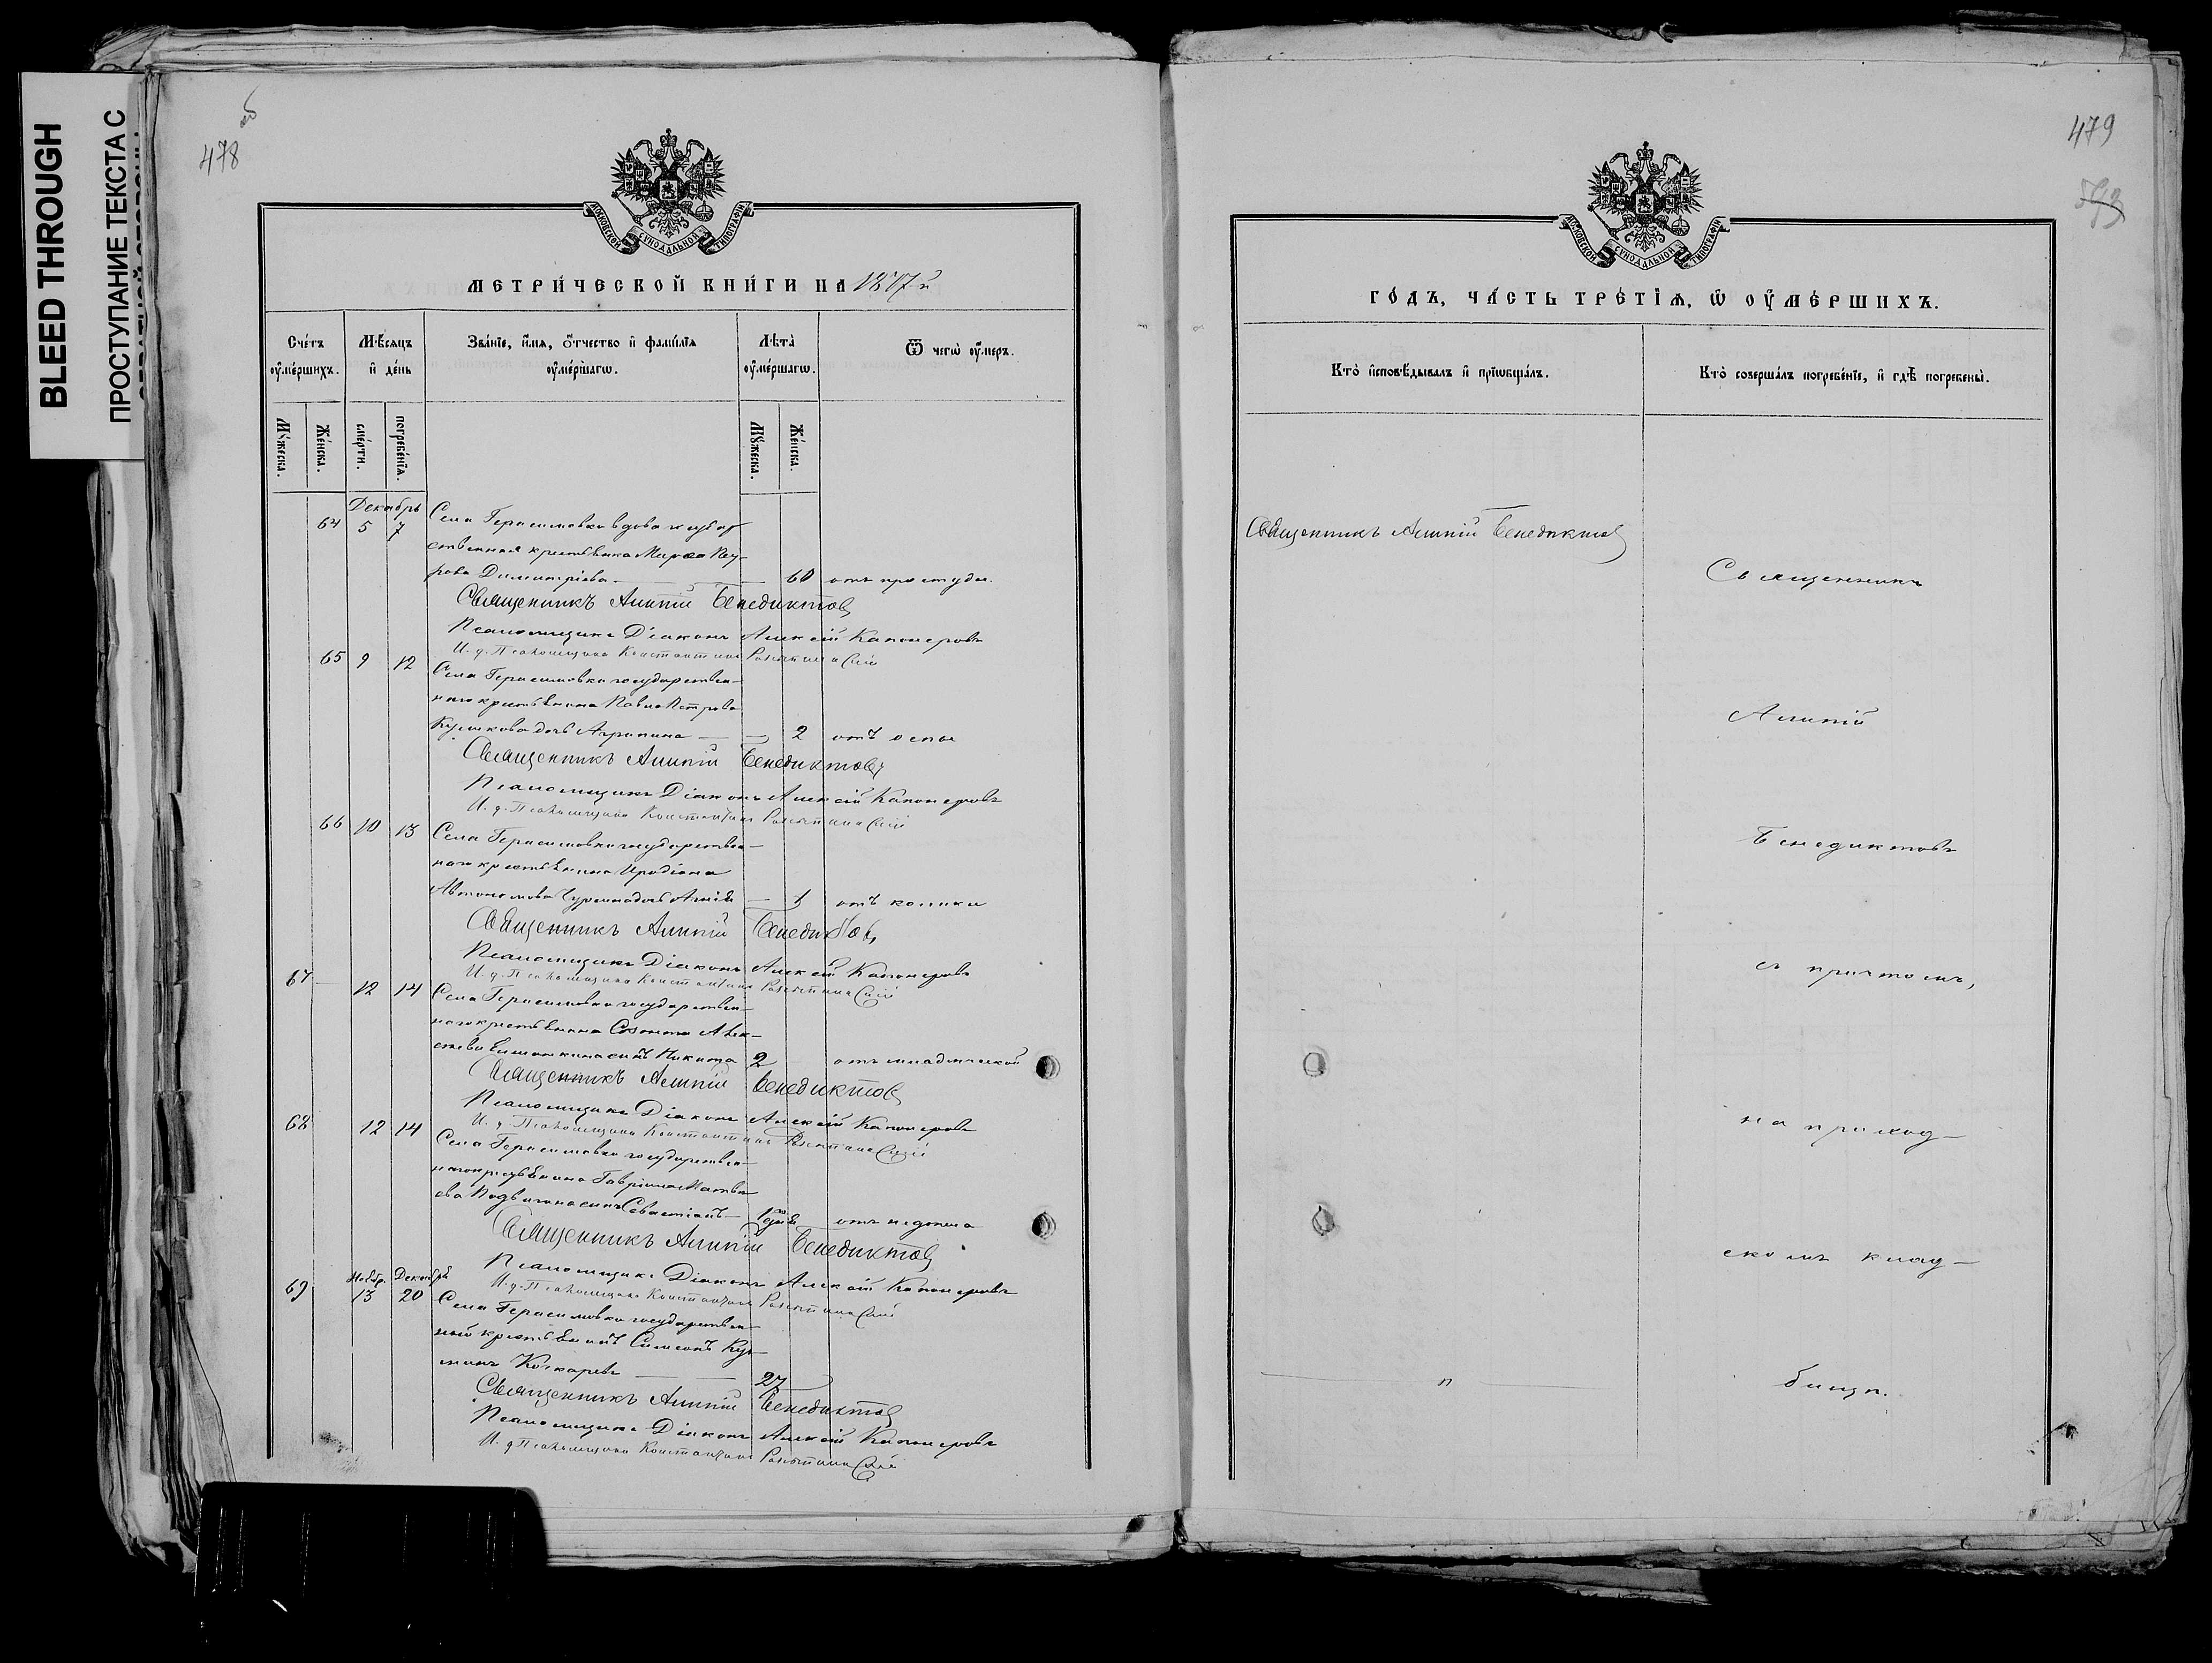 BLEED THROUGH
ПРОСТУПАНИЕ ТЕКСТА С
478 об
МОСКОВСКОЙ СУНОДАЛЬНОЙ ТИПОГРАФІИ
МЕТРИЧЕСКОЙ КНИГИ НА 1887-й
Счетъ оумершихъ.
Мѣсяцъ и день
Званіе, имя, отчество и фамилія оумершагѡ.
Лѣта оумершагѡ.
Ѿ чегѡ оумеръ.
Мужеска.
Женска.
смерти.
погребенія.
Мужеска.
Женска.
Декабрь
64 5 7 Села Герасимовки вдова государ
ственная крестьянка Марѳа Пет-
рова Димитріева 60 отъ простуды.
Священникъ Алипій Бенедиктовъ
Псаломщикъ Діаконъ Алексій Канонеровъ
И. д. Псаломщика Константинъ
65 9 12 Села Герасимовки государствен-
наго крестьянина Павла Петрова
Куликова дочь Агрипина 2 отъ оспы
Священникъ Алипій Бенедиктовъ
Псаломщикъ Діаконъ Алексій Канонеровъ
И. д. Псаломщика Константинъ
66 10 13 Села Герасимовки государствен-
наго крестьянина Иродіона
Автономова дочь 1 отъ колики
Священникъ Алипій Бенедиктовъ
Псаломщикъ Діаконъ Алексій Канонеровъ
И. д. Псаломщика Константинъ
67 12 14 Села Герасимовки государствен-
наго крестьянина Созонта Алек-
сѣева сынъ Никита 2 отъ младенческой
Священникъ Алипій Бенедиктовъ
Псаломщикъ Діаконъ Алексій Канонеровъ
И. д. Псаломщика Константинъ
68 12 14 Села Герасимовки государствен-
наго крестьянина Гавріила Матвѣ
ева сынъ Севастіанъ отъ
Священникъ Алипій Бенедиктовъ
Псаломщикъ Діаконъ Алексій Канонеровъ
И. д. Псаломщика Константинъ
Ноябр. Декабрь
69 13 20 Села Герасимовки государствен-
ный крестьянинъ Симеонъ Кузь-
минъ Кочкаревъ 27
Священникъ Алипій Бенедиктовъ
Псаломщикъ Діаконъ Алексій Канонеровъ
И. д. Псаломщика Константинъ
479
МОСКОВСКОЙ СУНОДАЛЬНОЙ ТИПОГРАФІИ
ГОДЪ, ЧАСТЬ ТРЕТІЯ, Ѿ ОУМЕРШИХЪ.
Кто исповѣдывалъ и пріѡбщалъ.
Кто совершалъ погребеніе, и гдѣ погребены.
Священникъ Алипій Бенедиктовъ
Священникъ
Алипій
Бенедиктовъ
съ причтомъ,
на приход-
скомъ клад-
бищѣ.